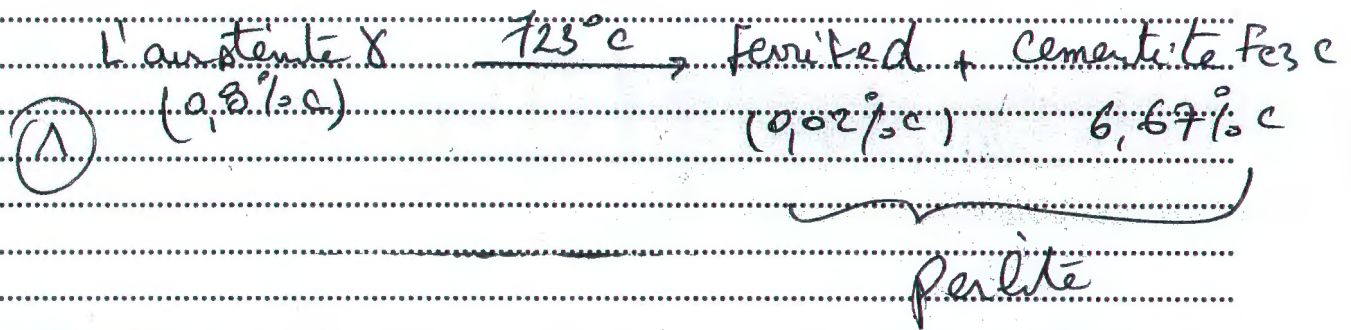 L'austénite γ 723°C → ferrite α + cementite Fe3C
(0,8%C) (0,02%C) 6,67%C
1
perlite